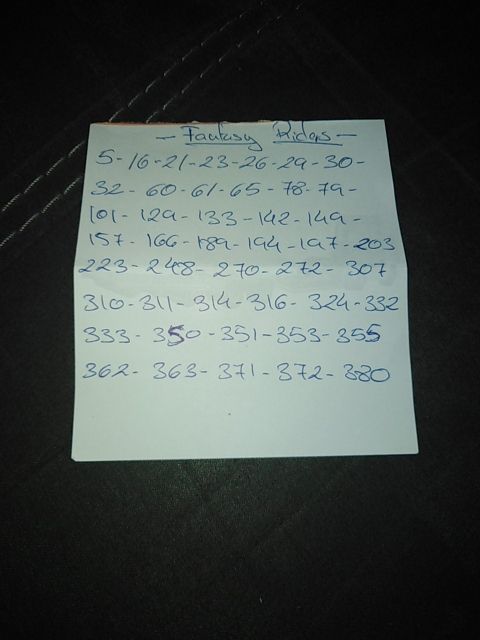 - Fantasy Riders -
5-16-21-23-26-29-30-
32-60-61-65-78-79-
101-129-133-142-149-
157-166-189-194-197-203
223-248-270-272-307
310-311-314-316-324-332
333-350-351-353-355
362-363-371-372-380